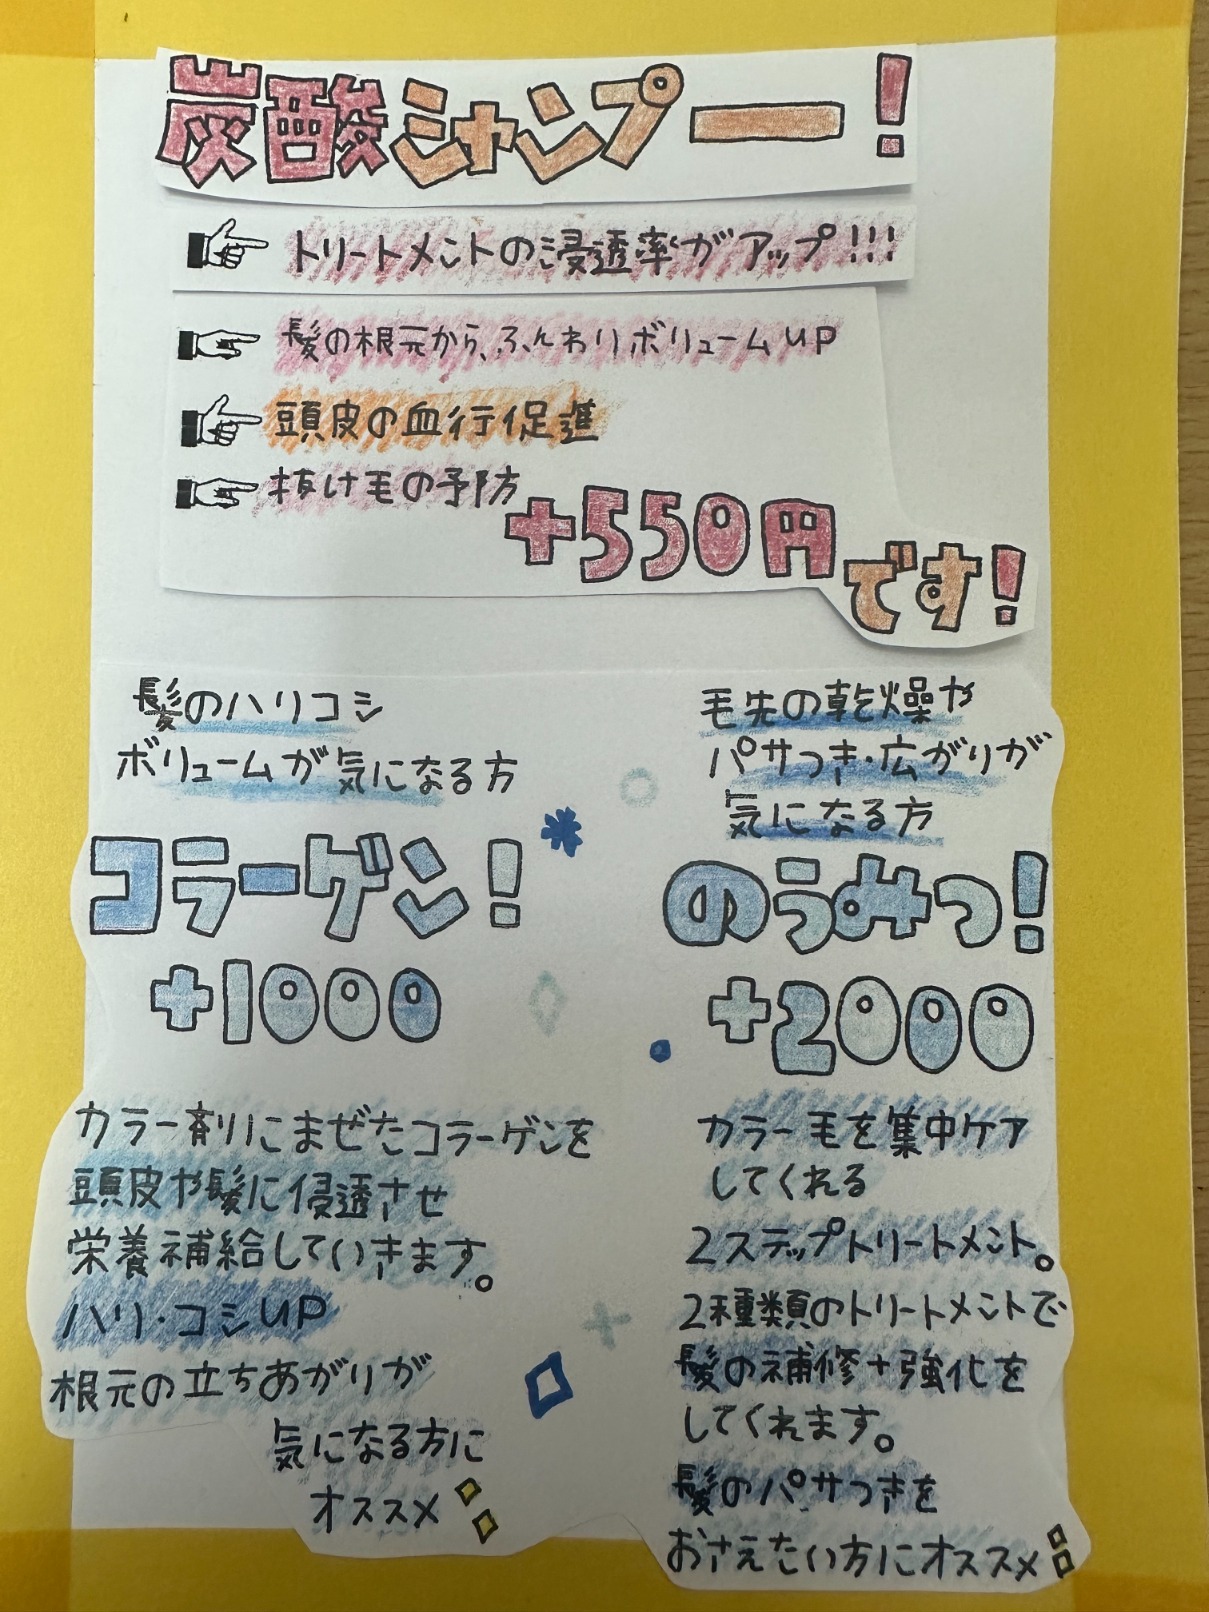 炭酸シャンプー!
トリートメントの浸透率がアップ!!!
髪の根元から、ふんわりボリュームUP
頭皮の血行促進
抜け毛の予防
+550円です!
髪のハリコシ
ボリュームが気になる方
コラーゲン!
+1000
カラー剤にまぜたコラーゲンを
頭皮や髪に浸透させ
栄養補給していきます。
ハリ・コシUP
根元の立ちあがりが
気になる方に
オススメ
毛先の乾燥や
パサつき・広がりが
気になる方
のうみつ!
+2000
カラー毛を集中ケア
してくれる
2ステップトリートメント。
2種類のトリートメントで
髪の補修+強化を
してくれます。
髪のパサつきを
おさえたい方にオススメ